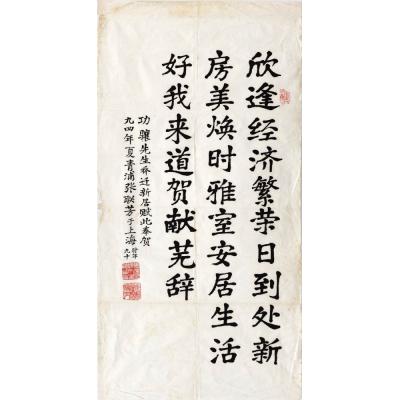 欣逢经济繁荣日到处新
房美焕时雅室安居生活
好我来道贺献芜辞
功骧先生乔迁新居赋此奉贺
九四年夏青浦张联芳于上海时年
九十